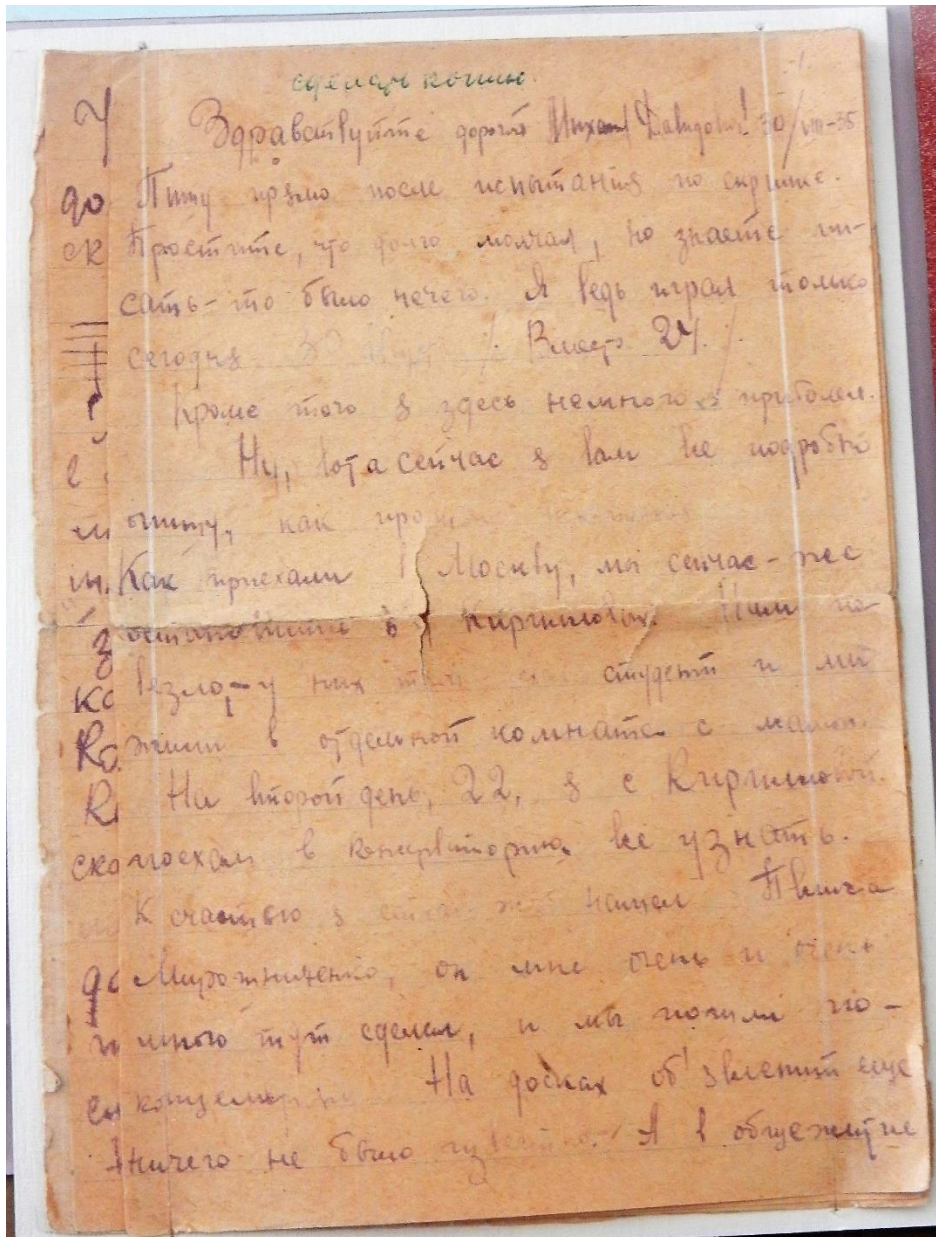 сделать копию.
Здравствуйте дорогой Михаил Давидович! 30/VIII-35
Пишу прямо после испытания по скрипке.
Простите, что долго молчал, но знаете пи-
сать-то было нечего. Я ведь играл только
сегодня 30 Вместо 24.
Кроме того я здесь немного приболел.
Ну, вот а сейчас я вам все подробно
опишу, как
Как приехали в Москву, мы сейчас-же
остановились у Кирилловых. Нам по
везло, – у них студент и мы
жили в отдельной комнате с мамой.
На второй день, 22, я с Кирилловой
поехал в консерваторию все узнать.
К счастью я нашел
Мирошниченко, он мне очень и очень
много тут сделал, и мы пошли по-
На досках об'явлений еще
ничего не было известно. А в общежитие